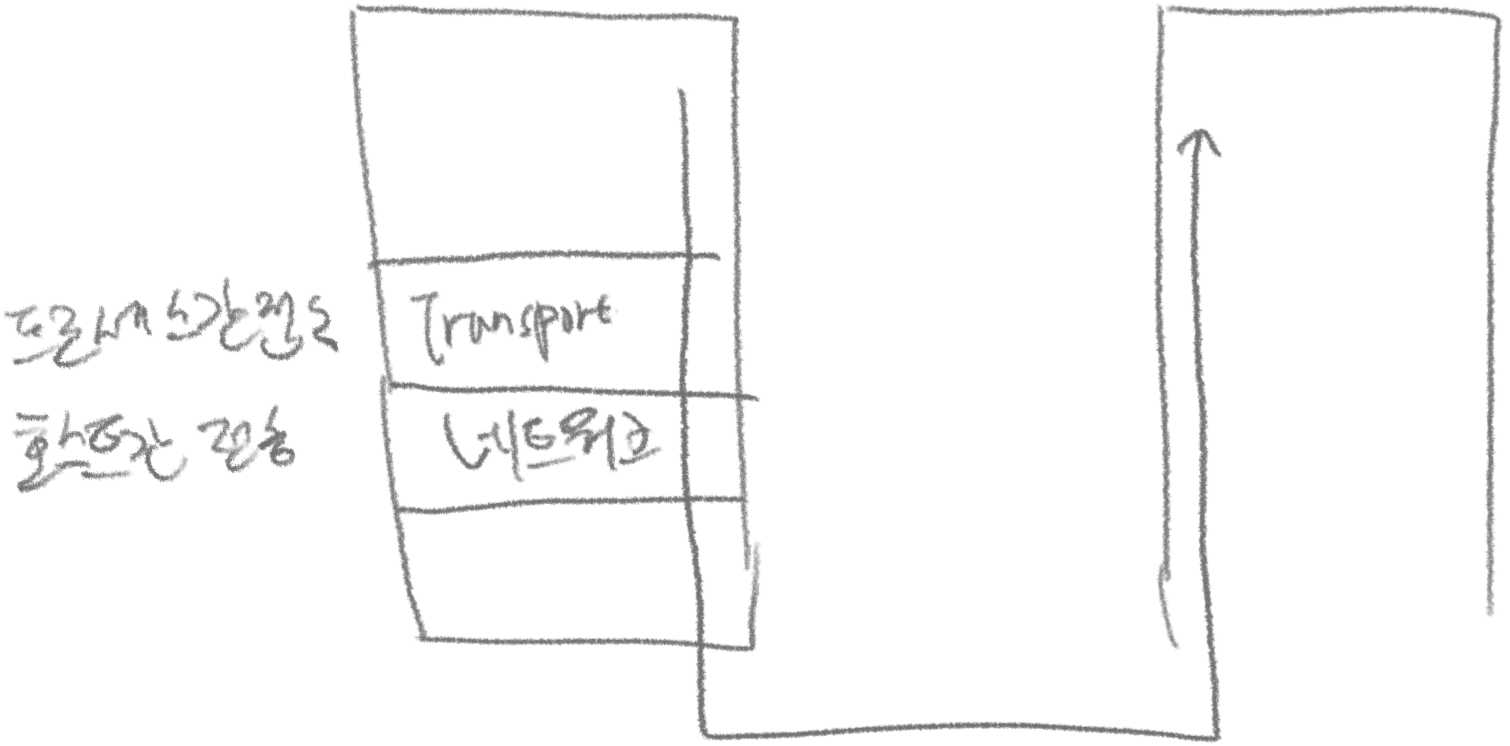 프로세스간 전송 Transport
호스트간 전송 네트워크